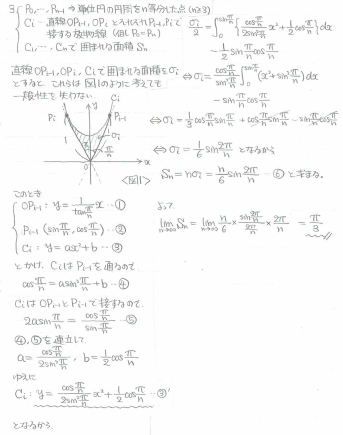 3 { P₀, …, Pₙ₋₁ → 単位円の円周をn等分した点 (n≧3)
Cᵢ…直線OPᵢ₋₁, OPᵢ とそれぞれPᵢ₋₁, Pᵢで
接する放物線 (但しP₀=Pₙ)
C₁, …, Cₙで囲まれる面積 Sₙ
直線OPᵢ₋₁, OPᵢ, Cᵢで囲まれる面積をσᵢ
とすると、これらは図1のように考えても
一般性を失わない。
y
Cᵢ
Pᵢ
Pᵢ₋₁
1
σᵢ
π/n
O
x
<図1>
このとき
{ OPᵢ₋₁ : y = 1/tan(π/n) x …①
Pᵢ₋₁ (sin π/n, cos π/n) …②
Cᵢ : y = ax² + b …③
とかけ、CᵢはPᵢ₋₁を通るので
cos π/n = a sin² π/n + b …④
CᵢはOPᵢ₋₁とPᵢ₋₁で接するので、
2a sin π/n = cos(π/n)/sin(π/n) …⑤
④,⑤を連立して
a = cos(π/n)/(2sin²(π/n)), b = 1/2 cos π/n
ゆえに
Cᵢ : y = cos(π/n)/(2sin²(π/n)) x² + 1/2 cos π/n …③'
となるから
σᵢ/2 = ∫₀^{sin π/n} { cos(π/n)/(2sin²(π/n)) x² + 1/2 cos π/n } dx
− 1/2 sin π/n cos π/n
⇔ σᵢ = cos(π/n)/sin²(π/n) ∫₀^{sin π/n} (x² + sin² π/n) dx
− sin π/n cos π/n
⇔ σᵢ = 1/3 cos π/n sin π/n + cos π/n sin π/n − sin π/n cos π/n
⇔ σᵢ = 1/6 sin 2π/n となるから
Sₙ = nσᵢ = n/6 sin 2π/n …⑥ と求まる。
よって
lim_{n→∞} Sₙ = lim_{n→∞} n/6 × sin(2π/n)/(2π/n) × 2π/n = π/3